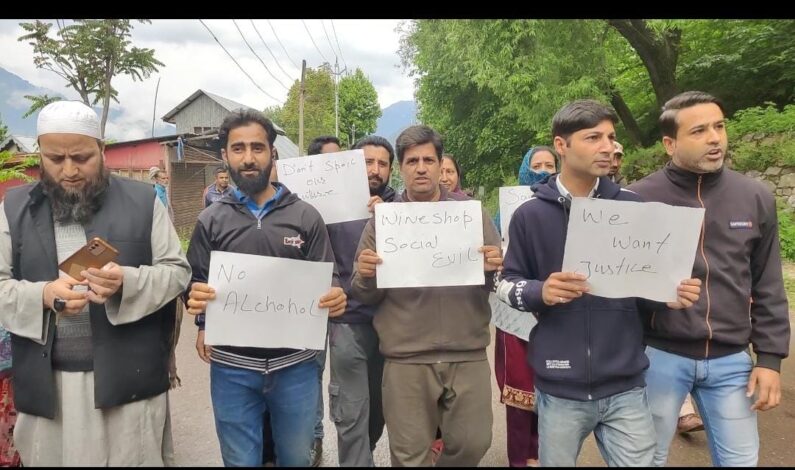 Don't Spoil
our
No
ALchohoL
WineShop
Social
EviL
We
Want
Justice